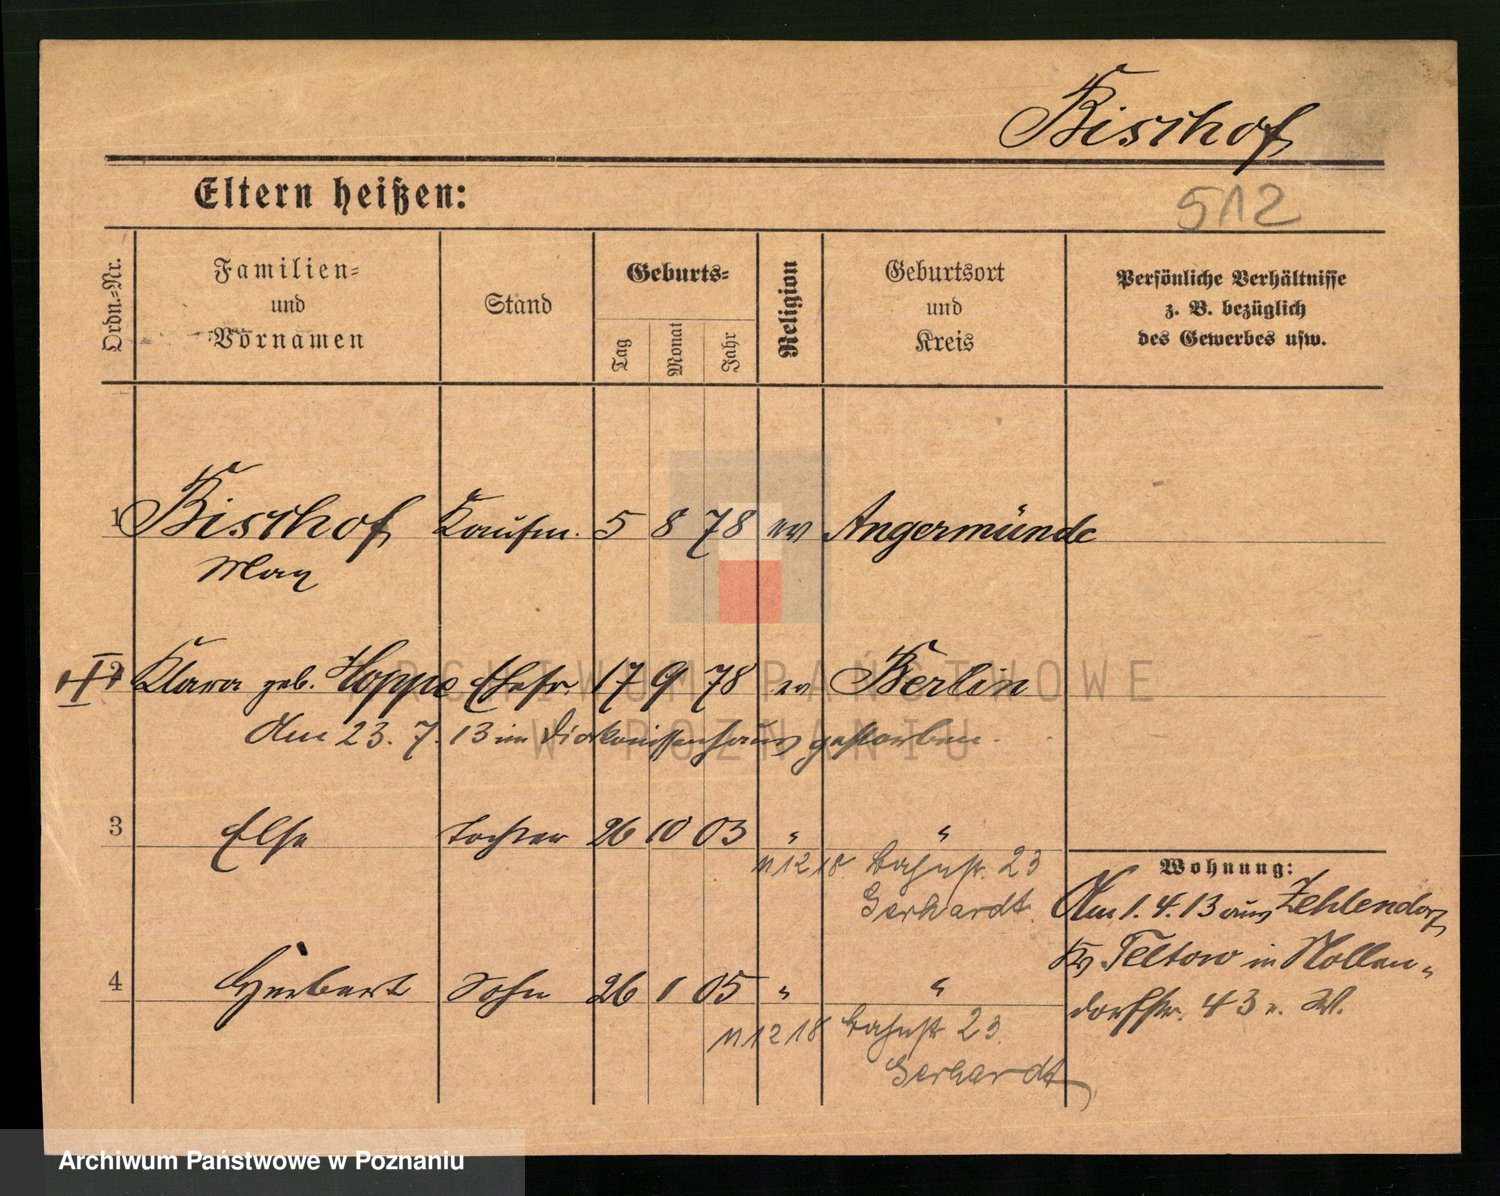 Bischof
Eltern heißen:
512
Ordn.-Nr.
Familien-
und
Vornamen
Stand
Geburts-
Tag
Monat
Jahr
Religion
Geburtsort
und
Kreis
Persönliche Verhältnisse
z. B. bezüglich
des Gewerbes usw.
1 Bischof Kaufm. 5 8 78 ev Angermünde
Max
2 Klara geb. Hoppe Ehefr. 17 9 78 ev Berlin
Am 23. 7. 13 im Diakonissenhaus gestorben.
3 Else Tochter 26 10 03 " "
11 12 18 Bahnstr. 23
Gerhardt
4 Herbert Sohn 26 1 05 " "
11 12 18 Bahnstr 23.
Gerhardt
Wohnung:
Am 1. 4. 13 aus Zehlendorf
Kr. Teltow in Nollen-
dorfstr. 43 e. W.
ARCHIWUM PAŃSTWOWE
W POZNANIU
Archiwum Państwowe w Poznaniu